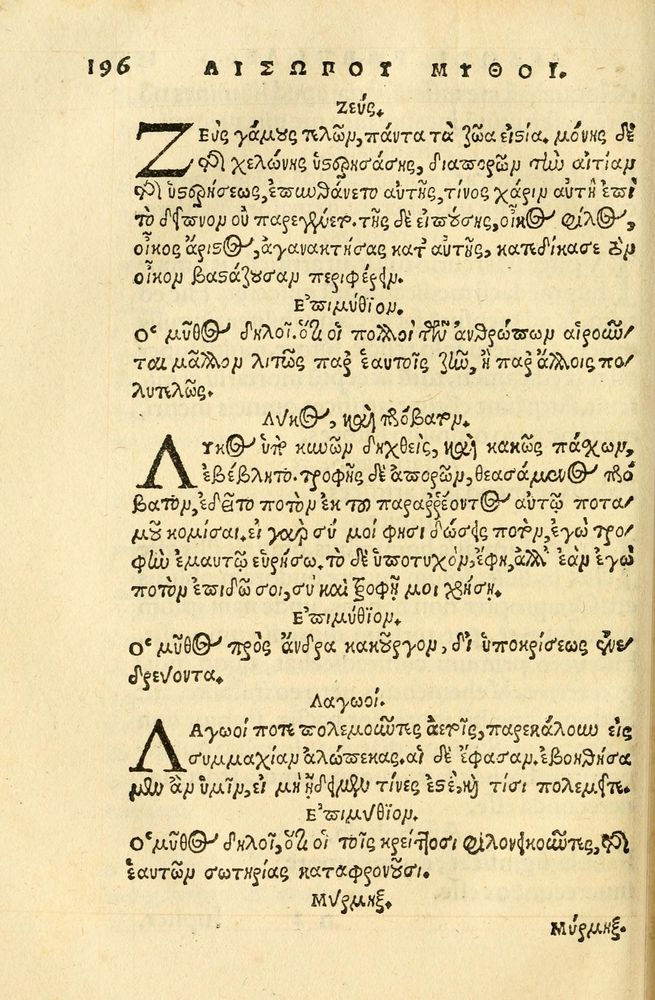 196 ΑΙΣΩΠΟΥ ΜΥΘΟΙ.
Ζεύς.
ΖΕὺς γάμους τελῶν, πάντα τὰ ζῶα εἱστία. μόνης δὲ
τῆς χελώνης ὑστερησάσης, διαπορῶν τὴν αἰτίαν
τῆς ὑστερήσεως, ἐπυνθάνετο αὐτῆς, τίνος χάριν αὐτὴ ἐπὶ
τὸ δεῖπνον οὐ παρεγένετο. τῆς δὲ εἰπούσης, οἶκος φίλος,
οἶκος ἄριστος, ἀγανακτήσας κατ' αὐτῆς, κατεδίκασε τὸν
οἶκον βαστάζουσαν περιφέρειν.
Ἐπιμύθιον.
Ὁ μῦθος δηλοῖ. ὅτι οἱ πολλοὶ τῶν ἀνθρώπων αἱροῦν
ται μᾶλλον λιτῶς παρ' ἑαυτοῖς ζῆν, ἢ παρ' ἄλλοις πο/
λυτελῶς.
Λύκος, καὶ πρόβατον.
ΛΥκος ὑπὸ κυνῶν δηχθεὶς, καὶ κακῶς πάσχων,
ἐβέβλητο. τροφῆς δὲ ἀπορῶν, θεασάμενος πρό
βατον, ἐδεῖτο ποτὸν ἐκ τοῦ παραῤῥέοντος αὐτῷ ποτα/
μοῦ κομίσαι. εἰ γὰρ σύ μοι φησὶ δώσεις ποτὸν, ἐγὼ τρο/
φὴν ἐμαυτῷ εὑρήσω. τὸ δὲ ὑποτυχὸν, ἔφη, ἀλλ' ἐὰν ἐγὼ
ποτὸν ἐπιδῶ σοι, σὺ καὶ τροφῇ μοι χρήσῃ.
Ἐπιμύθιον.
Ὁ μῦθος πρὸς ἄνδρα κακοῦργον, δι' ὑποκρίσεως ἐνε/
δρεύοντα.
Λαγωοί.
ΛΑγωοί ποτε πολεμοῦντες ἀετοῖς, παρεκάλουν εἰς
συμμαχίαν ἀλώπεκας. αἱ δὲ ἔφασαν. ἐβοηθήσα
μεν ἂν ὑμῖν, εἰ μὴ ᾔδειμεν τίνες ἐστὲ, καὶ τίσι πολεμεῖτε.
Ἐπιμύθιον.
Ὁ μῦθος δηλοῖ, ὅτι οἱ τοῖς κρείττοσι φιλονεικοῦντες, τῆς
ἑαυτῶν σωτηρίας καταφρονοῦσι.
Μύρμηξ.
Μύρμηξ.